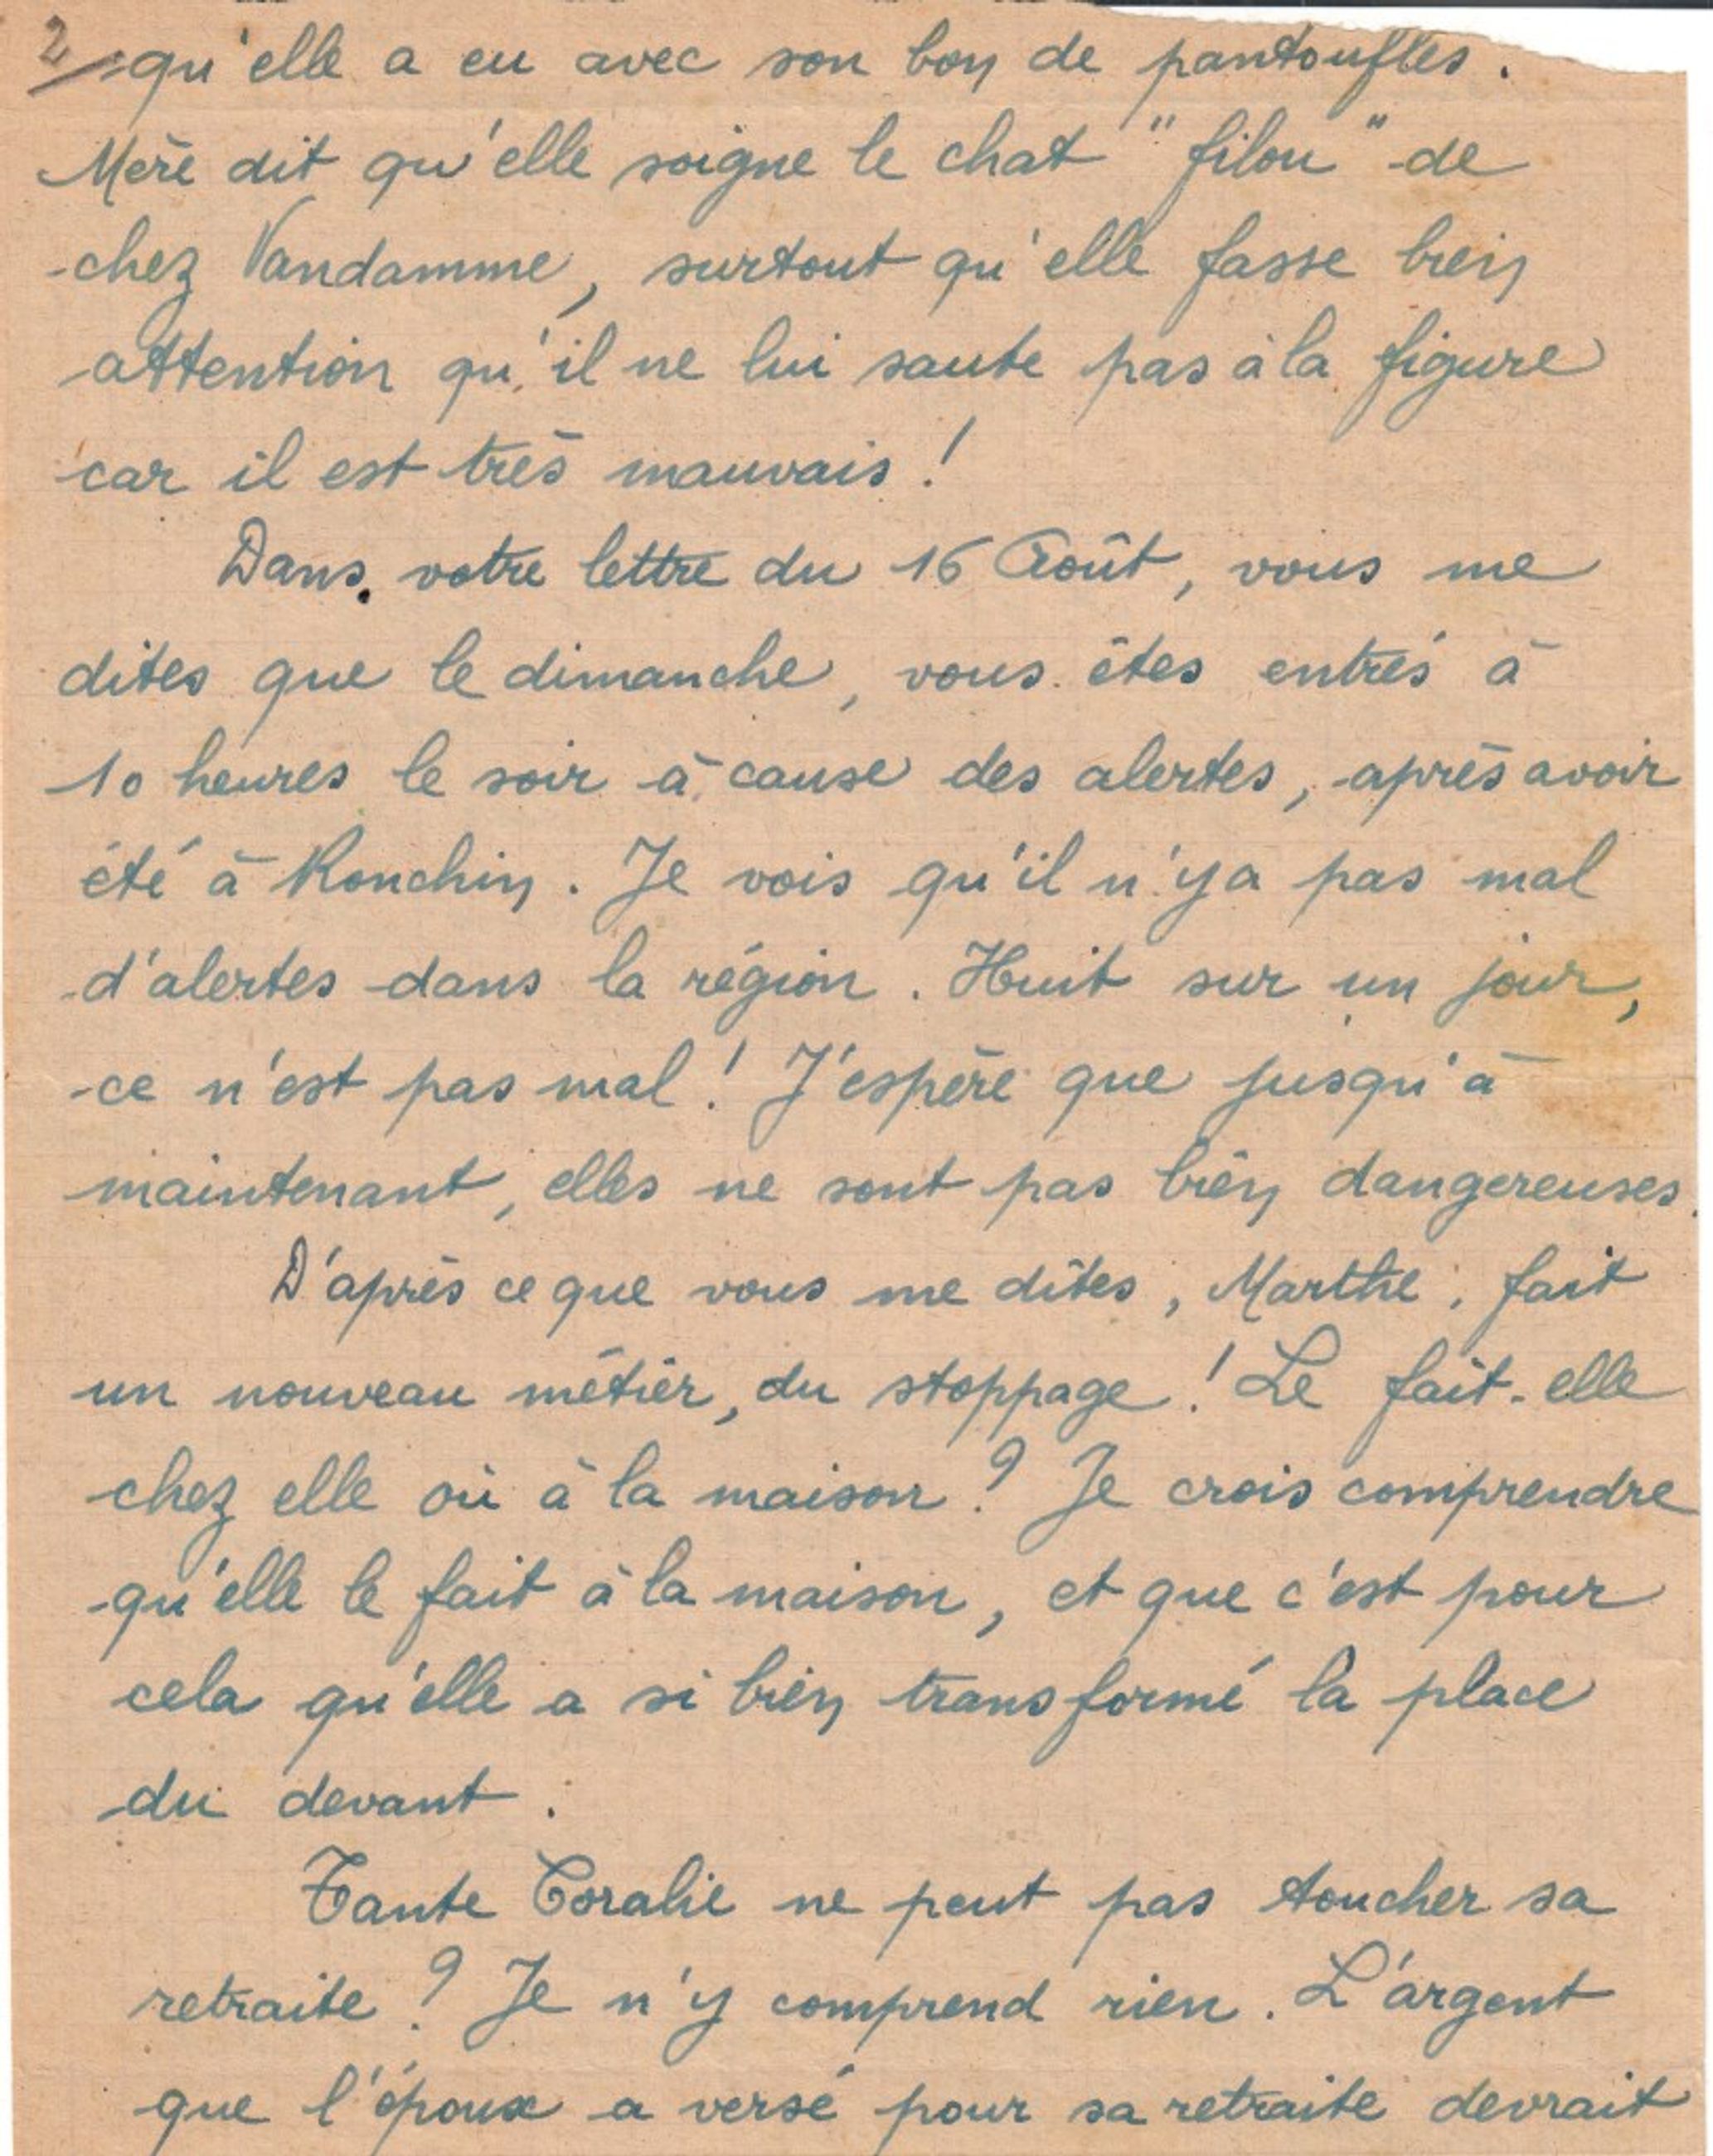 2 qu'elle a eu avec son bon de pantoufles.
Mère dit qu'elle soigne le chat "filou" de
chez Vandamme, surtout qu'elle fasse bien
attention qu'il ne lui saute pas à la figure
car il est très mauvais !
Dans votre lettre du 16 Août, vous me
dites que le dimanche, vous êtes entrés à
10 heures le soir à cause des alertes, après avoir
été à Ronchin. Je vois qu'il n'y a pas mal
d'alertes dans la région. Huit sur un jour,
ce n'est pas mal ! J'espère que jusqu'à
maintenant, elles ne sont pas bien dangereuses.
D'après ce que vous me dites, Marthe, fait
un nouveau métier, du stoppage ! Le fait-elle
chez elle où à la maison ? Je crois comprendre
qu'elle le fait à la maison, et que c'est pour
cela qu'elle a si bien transformé la place
du devant.
Tante Coralie ne peut pas toucher sa
retraite ? Je n'y comprend rien. L'argent
que l'époux a versé pour sa retraite devrait